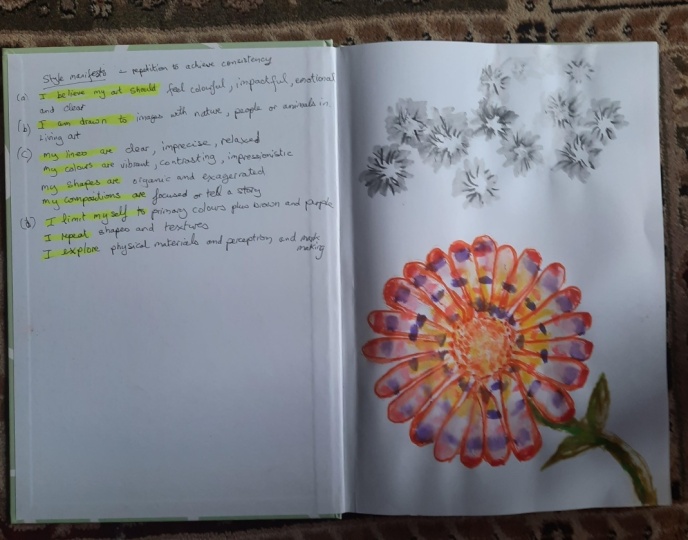 Style manifesto - repetition to achieve consistency
(a) I believe my art should feel colourful, impactful, emotional
and clear
(b) I am drawn to images with nature, people or animals in
living art
(c) my lines are clear, imprecise, relaxed
my colours are vibrant, contrasting, impressionistic
my shapes are organic and exagerrated
my compositions are focused or tell a story
(d) I limit myself to primary colours plus brown and purple
I repeat shapes and textures
I explore physical materials and perception and mark
making